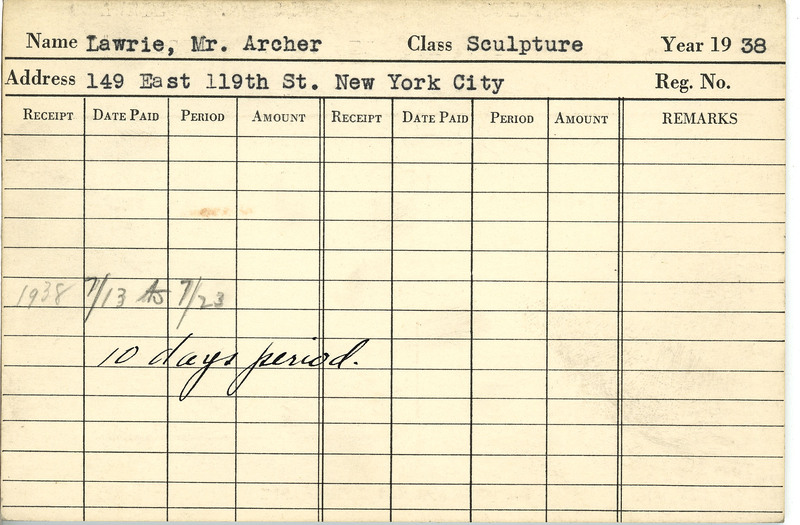 Name Lawrie, Mr. Archer Class Sculpture Year 19 38
Address 149 East 119th St. New York City Reg. No.
RECEIPT DATE PAID PERIOD AMOUNT RECEIPT DATE PAID PERIOD AMOUNT REMARKS
1938 7/13 to 7/23
10 days period.